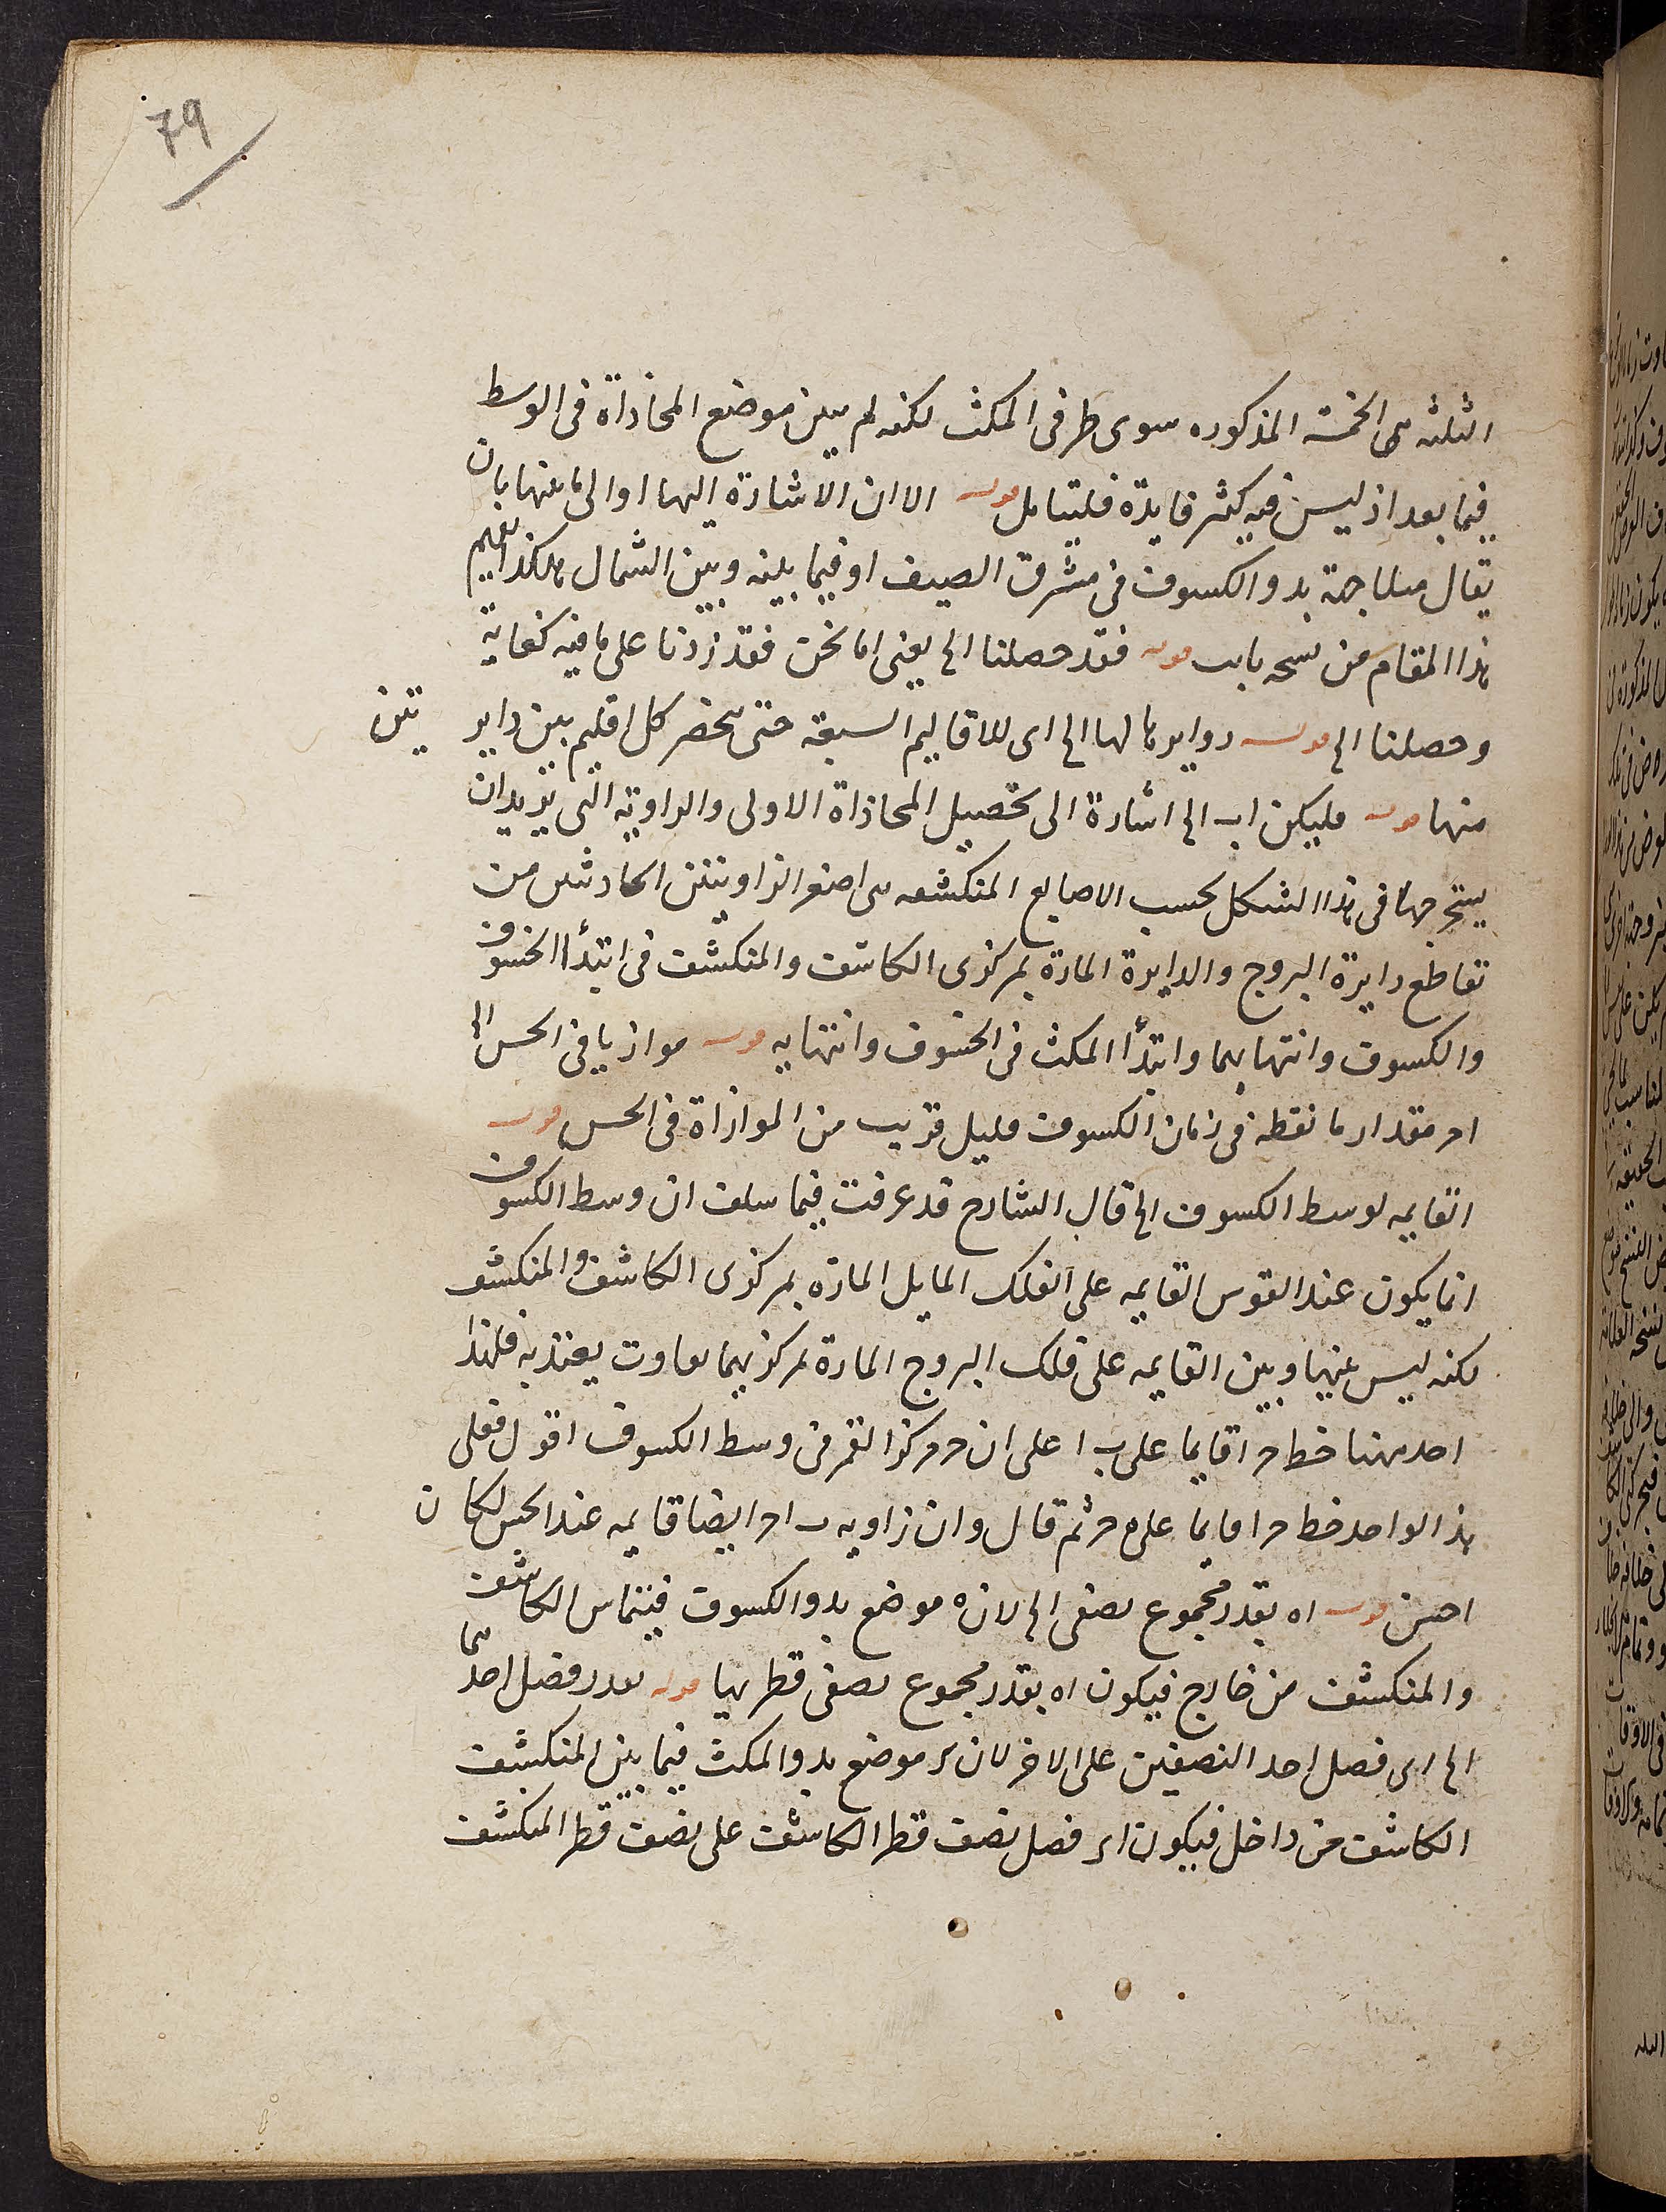 79
الثلثه هى الخمسة المذكوره سوى طرفى المكث لكنه لم يبين موضع المحاذاة فى الوسط
فيما بعد اذ ليس فيه كثير فايدة فليتامل قوله الا ان الاشارة اليها اوالى ما بينها بان
يقال مثلا جهة بدو الكسوف فى مشرق الصيف او فيما بينه وبين الشمال هكذا يفهم
هذا المقام من نسخه بابت قوله فقد حصلنا الخ يعنى اما نحن فقد زدنا على ما فيه كفاية
وحصلنا الخ قوله دواير مالها الخ اى للاقاليم السبعة حتى ينحصر كل اقليم بين دايرتين
منها قوله فليكن اب الخ اشارة الى تحصيل المحاذاة الاولى والزاوية التى نريد ان
يستخرجها فى هذا الشكل بحسب الاصابع المنكسفه هى اصغر الزاويتين الحادثتين من
تقاطع دايرة البروج والدايرة المارة بمركزى الكاشف والمنكشف فى ابتدأ الخسوف
والكسوف وانتهايهما وابتدأ المكث فى الخسوف وانتهايه قوله موازيا فى الحس الخ
احر مقدار ما نقطه فى زمان الكسوف قليل قريب من الموازاة فى الحس قوله
القايمه لوسط الكسوف الخ قال الشارح قد عرفت فيما سلف ان وسط الكسوف
انما يكون عند القوس القايمه على الفلك المايل المارة بمركزى الكاشف والمنكشف
لكنه ليس بينها وبين القايمه على فلك البروج المارة بمركزيهما تفاوت يعتد به فلهذا
احد ههنا خط حا قايما على ب ا على ان ح مركز القمر فى وسط الكسوف اقول فعلى
هذا لو احد خط حا قايما على ه ح ثم قال وان زاويه ب ا ح ايضا قايمه عند الحس لكان
احسن قوله اه بقدر مجموع نصفى الخ لان ه موضع بدو الكسوف فيتماس الكاشف
والمنكشف من خارج فيكون اه بقدر مجموع نصفى قطريهما قوله بقدر فضل احدهما
الخ اى فضل احد النصفين على الاخر لان ر موضع بدو المكث فيما بين المنكشف
الكاشف من داخل فيكون ار فضل نصف قطر الكاشف على نصف قطر المنكشف